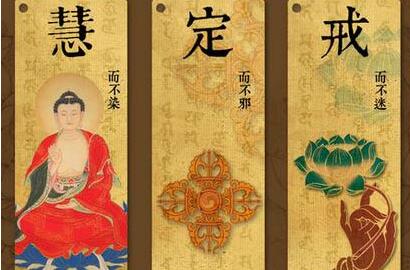 戒
而不迷
定
而不邪
慧
而不染